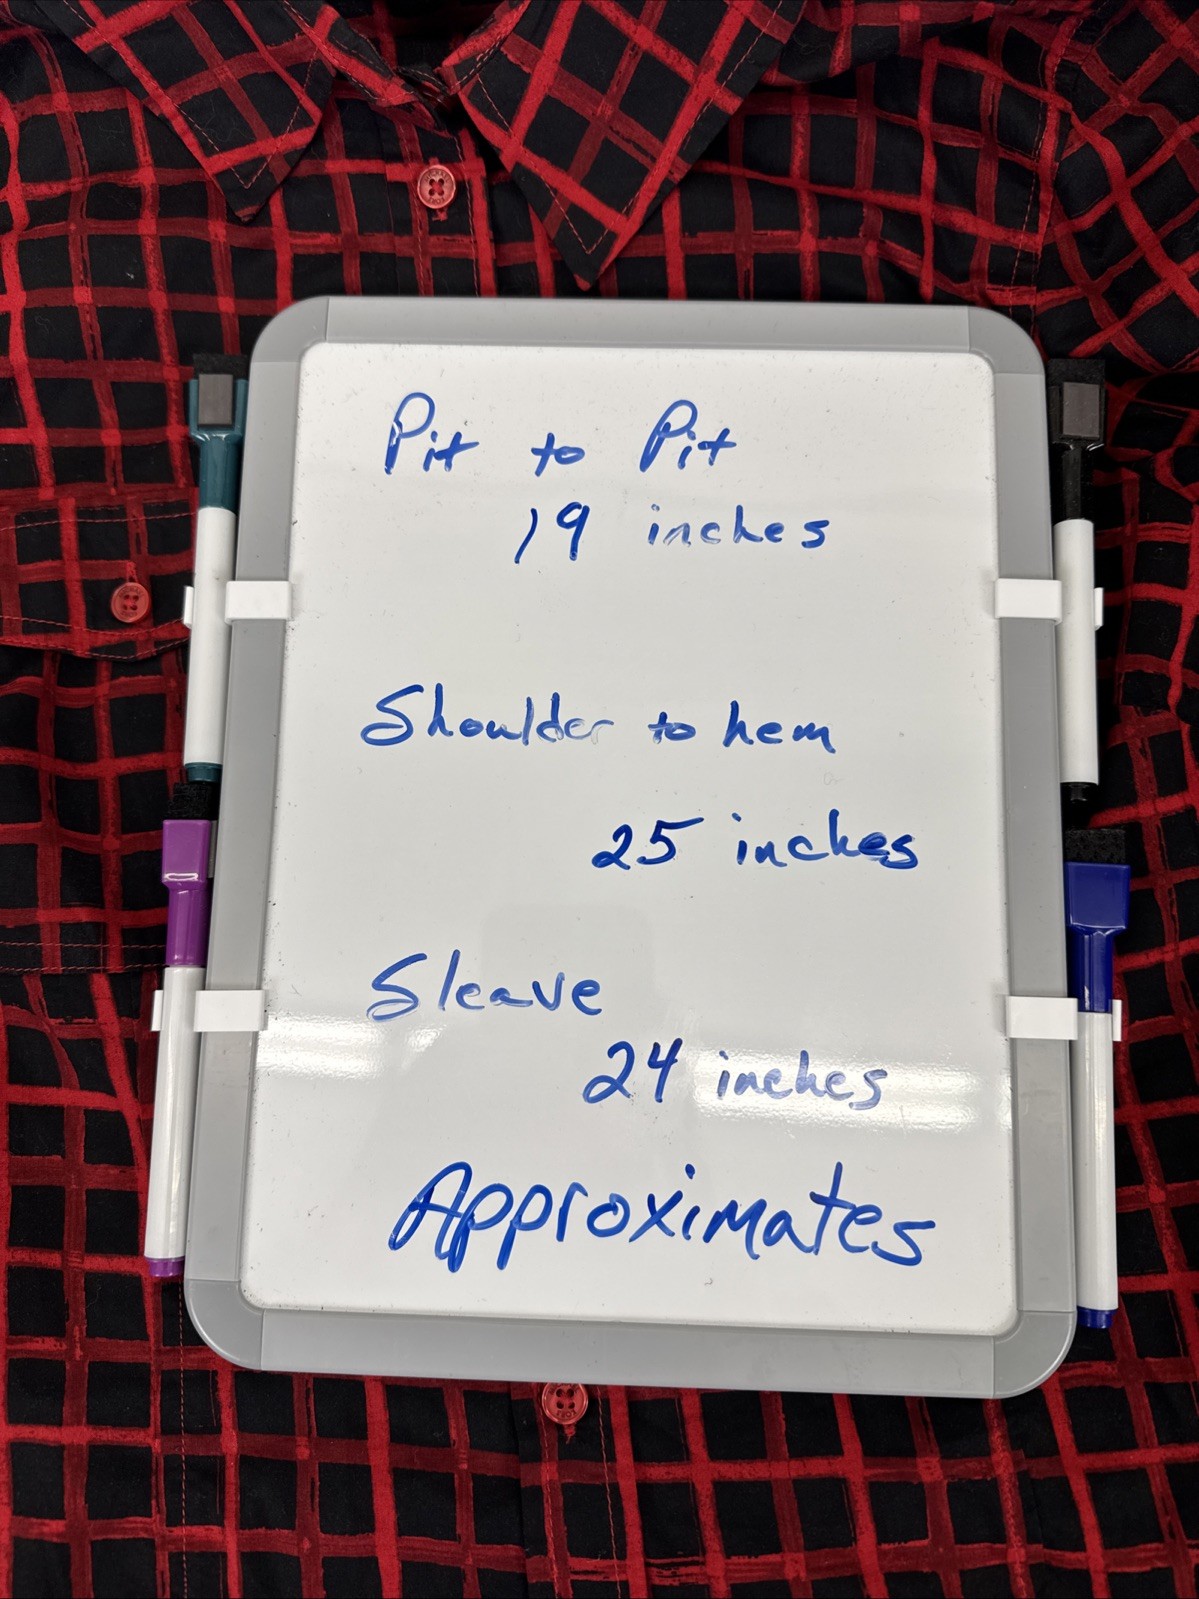 Pit to Pit
19 inches
Shoulder to hem
25 inches
Sleave
24 inches
Approximates